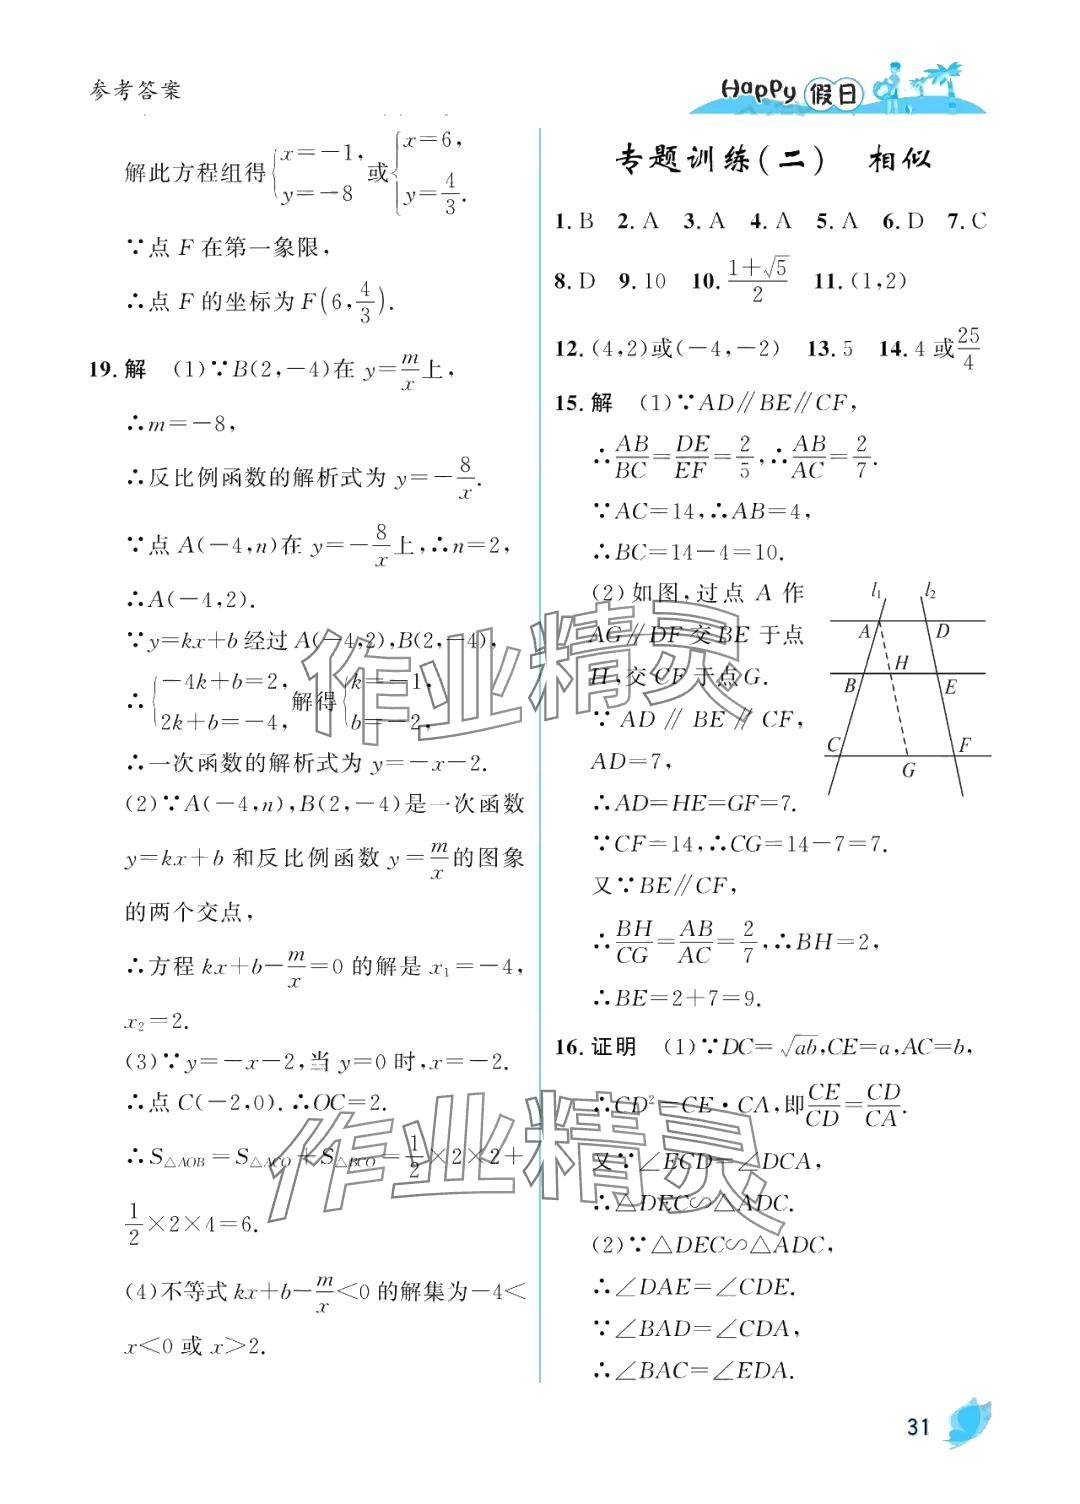 参考答案
Happy 假日
解此方程组得{x=-1, y=-8 或{x=6, y=4/3.
∵点 F 在第一象限,
∴点 F 的坐标为 F(6,4/3).
19. 解 (1)∵B(2,-4)在 y=m/x上,
∴m=-8,
∴反比例函数的解析式为 y=-8/x.
∵点 A(-4,n)在 y=-8/x上,∴n=2,
∴A(-4,2).
∵y=kx+b经过 A(-4,2),B(2,-4),
∴{-4k+b=2, 2k+b=-4, 解得{k=-1, b=-2,
∴一次函数的解析式为 y=-x-2.
(2)∵A(-4,n),B(2,-4)是一次函数
y=kx+b 和反比例函数 y=m/x的图象
的两个交点,
∴方程 kx+b-m/x=0 的解是 x₁=-4,
x₂=2.
(3)∵y=-x-2,当 y=0 时,x=-2.
∴点 C(-2,0).∴OC=2.
∴S△AOB=S△ACO+S△BCO=1/2×2×2+
1/2×2×4=6.
(4)不等式 kx+b-m/x<0 的解集为-4<
x<0 或 x>2.
专题训练(二) 相似
1. B 2. A 3. A 4. A 5. A 6. D 7. C
8. D 9. 10 10. (1+√5)/2 11. (1,2)
12. (4,2)或(-4,-2) 13. 5 14. 4 或25/4
15. 解 (1)∵AD∥BE∥CF,
∴AB/BC=DE/EF=2/5,∴AB/AC=2/7.
∵AC=14,∴AB=4,
∴BC=14-4=10.
(2)如图,过点 A 作
AG∥DF 交 BE 于点
H,交 CF 于点 G.
∵ AD∥BE∥CF,
AD=7,
l₁ l₂
A D
H
B E
C F
G
∴AD=HE=GF=7.
∵CF=14,∴CG=14-7=7.
又∵BE∥CF,
∴BH/CG=AB/AC=2/7,∴BH=2,
∴BE=2+7=9.
16. 证明 (1)∵DC=√ab,CE=a,AC=b,
∴CD²=CE·CA,即CE/CD=CD/CA.
又∵∠ECD=∠DCA,
∴△DEC∽△ADC.
(2)∵△DEC∽△ADC,
∴∠DAE=∠CDE.
∵∠BAD=∠CDA,
∴∠BAC=∠EDA.
31
作业精灵
作业精灵